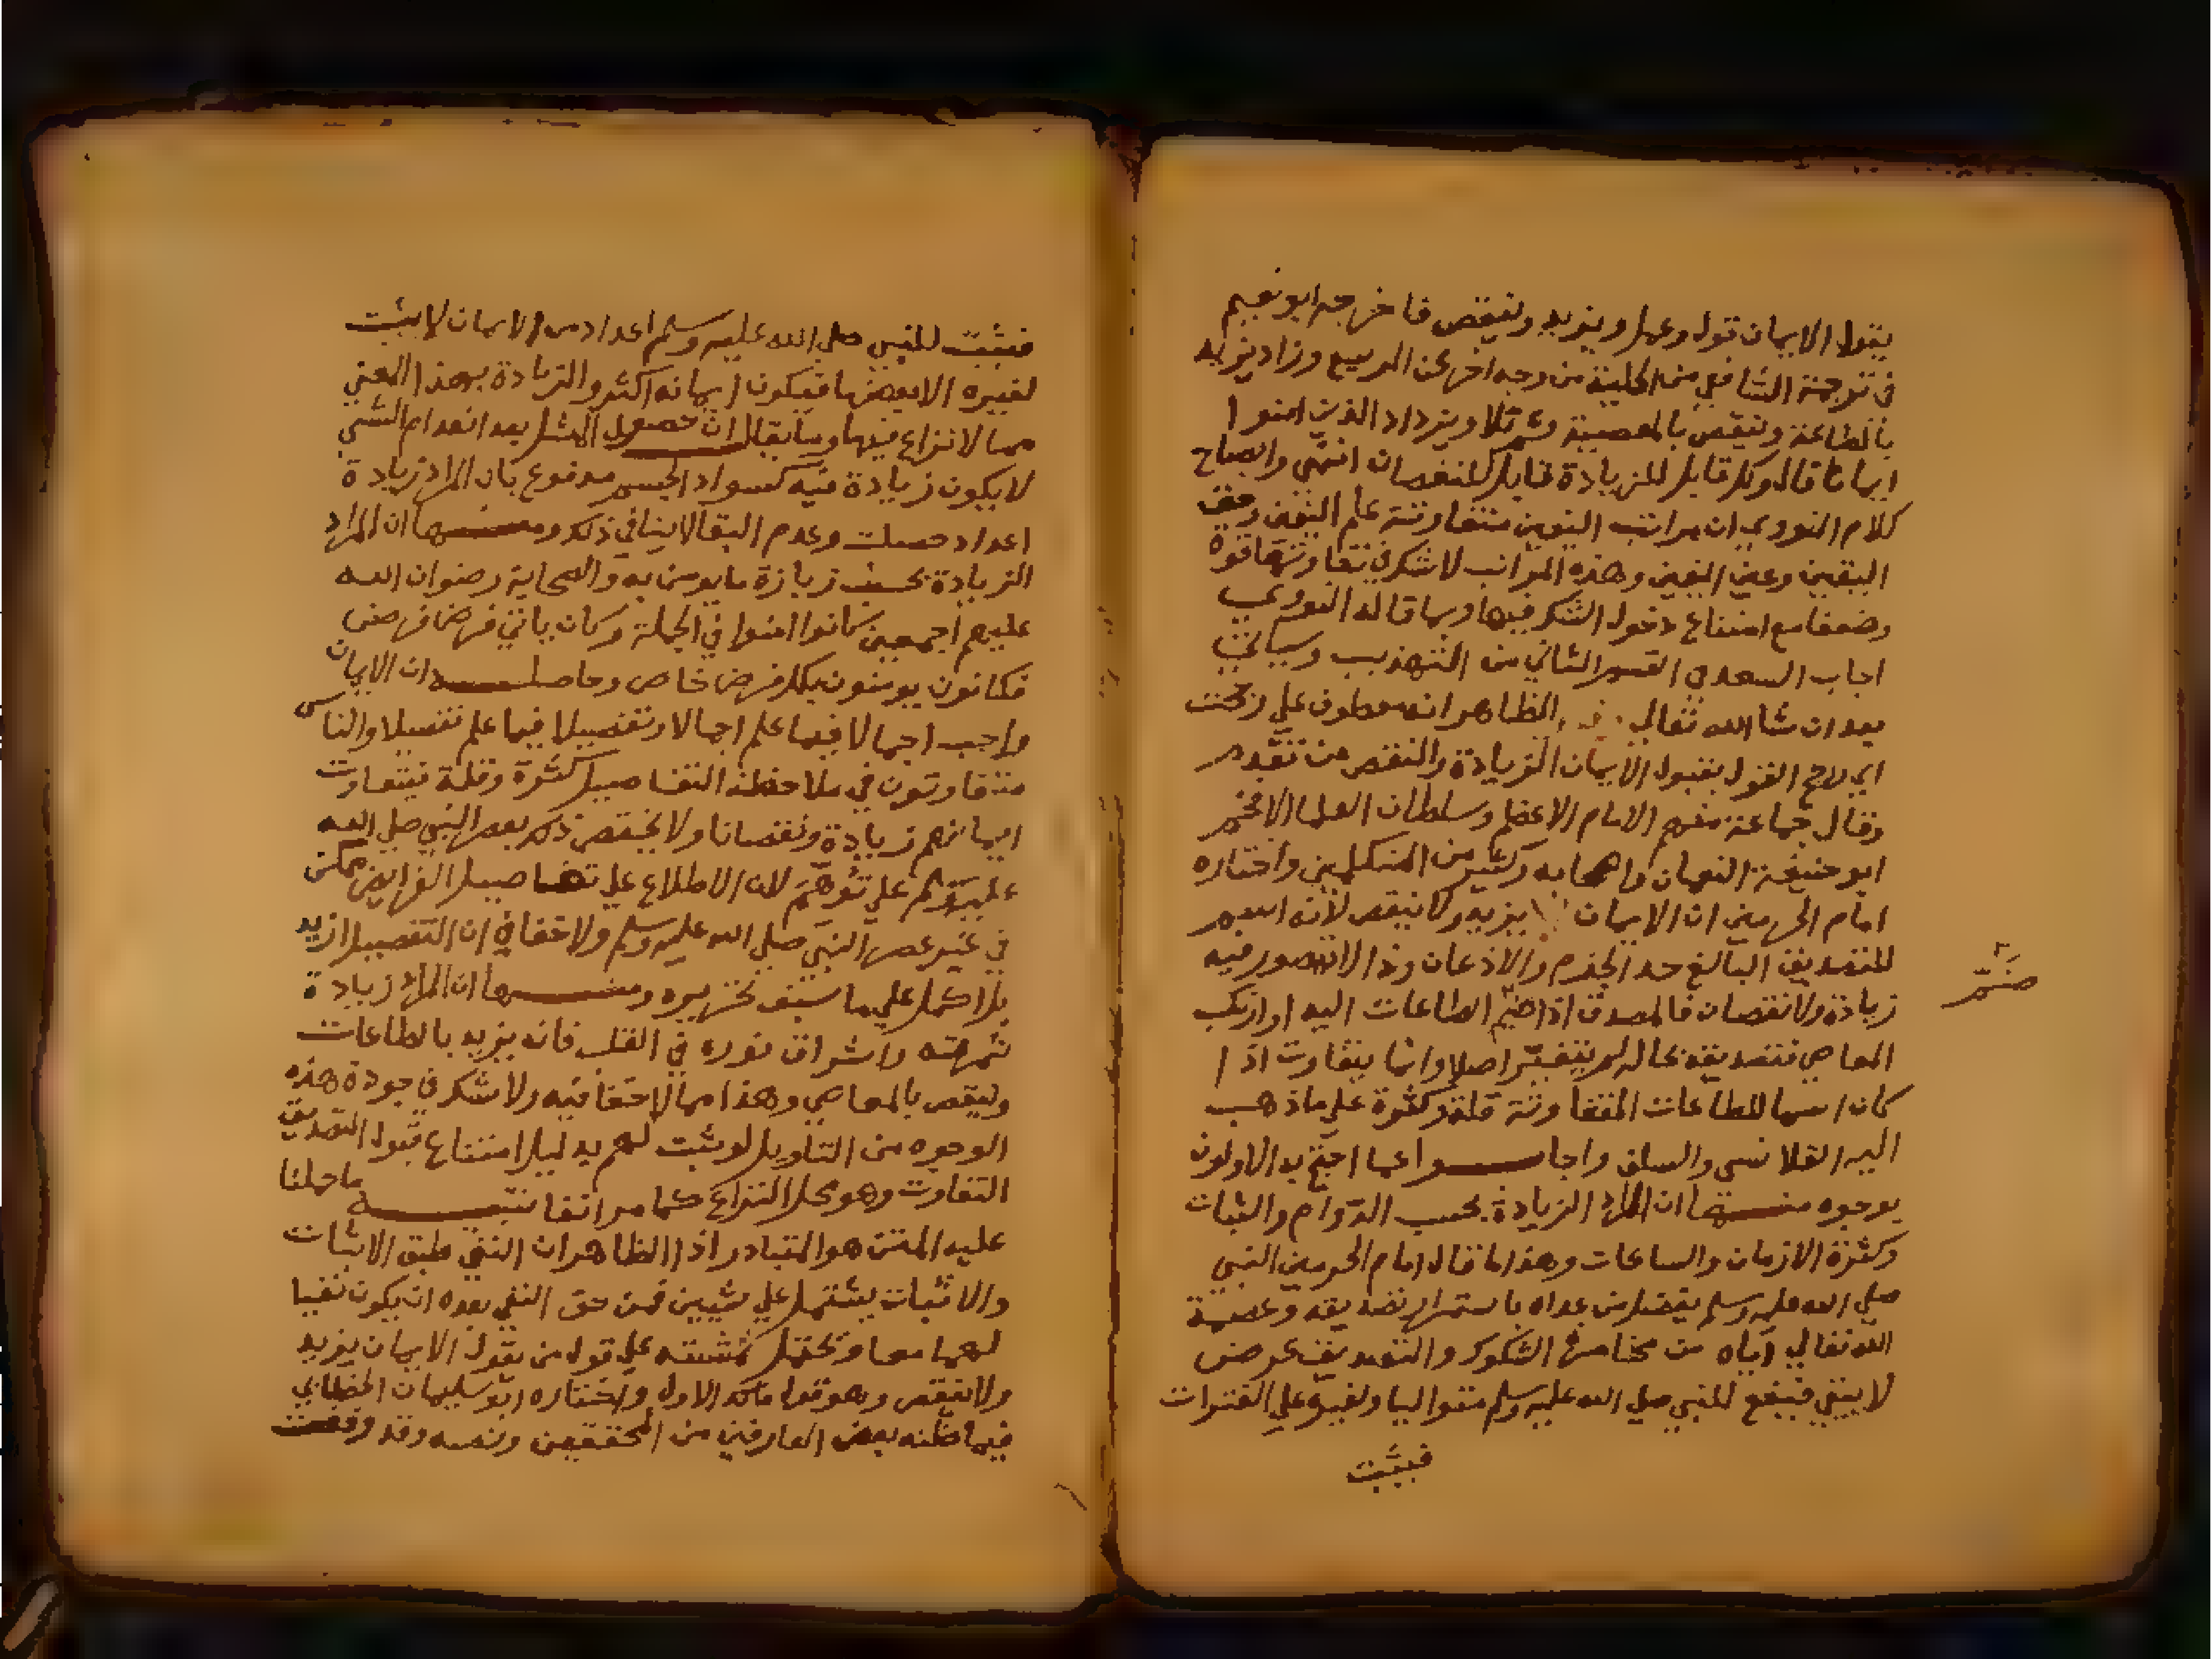 يقول الايمان قول وعمل ويزيد وينقص فاخرجه ابو نعيم
في ترجمة الشافعي من الحلية من وجه اخر عن الربيع وزاد يزيد
بالطاعة وينقص بالمعصية ثم تلا ويزداد الذين امنوا
ايمانا قال وكل قابل للزيادة قابل للنقصان انتهى وايضاح
كلام النووي ان مراتب اليقين متفاوتة علم اليقين وحق
اليقين وعين اليقين وهذه المراتب لا شك في تفاوتها قوة
وضعفا مع امتناع دخول الشك فيها وبما قاله النووي
اجاب السعد في القسم الثاني من التهذيب وسياتي
بعد ان شا الله تعالى الظاهر انه معطوف علي رجحت
اي رجح القول بقبول الايمان الزيادة والنقص من تقدم
وقال جماعة منهم الامام الاعظم وسلطان العلما الافخم
ابو حنيفة النعمان واصحابه وكثير من المتكلمين واختاره
امام الحرمين ان الايمان يزيد ولا ينقص لانه اسم
للتصديق البالغ حد الجزم والاذعان وذا لا يتصور فيه
زيادة ولا نقصان فالمصدق اذا ضم الطاعات اليه او ارتكب
ضم
المعاصي فتصديقه بحاله لم يتغير اصلا وانما يتفاوت اذا
كان اسما للطاعات المتفاوتة قلة وكثرة علي ما ذهب
اليه القلانسي والسلف واجابوا عما احتج به الاولون
بوجوه منها ان المراد الزيادة بحسب الدوام والثبات
وكثرة الازمان والساعات وهذا ما قاله امام الحرمين النبي
صلي الله عليه وسلم يفضل من عداه باستمرار تصديقه وعصمة
الله تعالي اياه من مخامرة الشكوك والتصديق عرض
لا يبقي فيقع للنبي صلي الله عليه وسلم متواليا ولغيره علي الفترات
فيثبت
فيثبت للنبي صلي الله عليه وسلم اعداد من الايمان لا يثبت
لغيره الا بعضها فيكون ايمانه اكثر والزيادة بهذا المعني
مما لا نزاع فيها وما يقال ان حصول المثل بعد انعدام الشي
لا يكون زيادة فيه كسواد الجسم مدفوع بان المراد زيادة
اعداد حصلت وعدم البقا لا ينافي ذلك ومنها ان المراد
الزيادة بحسب زيادة ما يومن به والصحابة رضوان الله
عليهم اجمعين كانوا امنوا في الجملة وكان ياتي فرض فرض
فكانوا يومنون بكل فرض خاص وحاصله ان الايمان
واجب اجمالا فيما علم اجمالا وتفصيلا فيما علم تفصيلا والناس
متفاوتون في ملاحظة التفاصيل كثرة وقلة فيتفاوت
ايمانهم زيادة ونقصانا ولا يختص ذلك بعصر النبي صلي الله
عليه وسلم علي توهم لان الاطلاع علي تفاصيل الفرايض ممكن
في غير عصر النبي صلي الله عليه وسلم ولا خفا في ان التفصيل ازيد
بل اكمل علي ما سبق تحريره ومنها ان المراد زيادة
ثمرته واشراق نوره في القلب فانه يزيد بالطاعات
وينقص بالمعاصي وهذا مما لا خفا فيه ولا شك في جودة هذه
الوجوه من التاويل لو ثبت لهم بدليل امتناع قبول التصديق
التفاوت وهو محل النزاع كما مر انفا تنبيه ما حملنا
عليه المتن هو المتبادر اذ الظاهر ان النفي طبق الاثبات
والاثبات يشتمل علي شيين فمن حق النفي بعده ان يكون نفيا
لهما معا ويحتمل علي قول من يقول الايمان يزيد
ولا ينقص وهو قول مالك الاول واختاره ابو سليمان الخطابي
فيما ظنه بعض العارفين من المحققين ونصه وقد وقعت